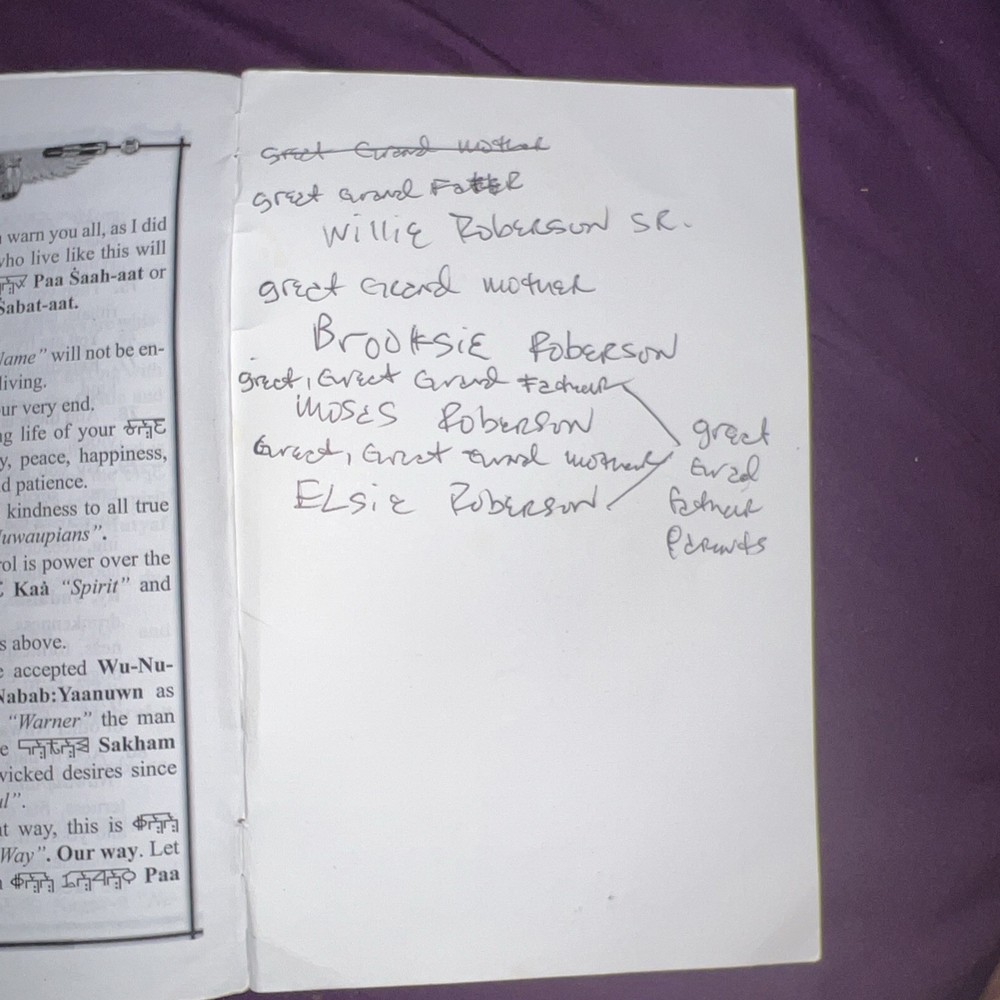 warn you all, as I did
who live like this will
Paa Šaah-aat or
Šabat-aat.
Name" will not be en-
living.
ur very end.
g life of your
y, peace, happiness,
d patience.
kindness to all true
Nuwaupians".
ol is power over the
Kaå "Spirit" and
s above.
e accepted Wu-Nu-
Nabab:Yaanuwn as
"Warner" the man
e Sakham
wicked desires since
l".
at way, this is
Way". Our way. Let
Paa
great Grand mother
great Grand FatER
Willie Roberson SR.
great Grand mother
Brooksie Roberson
great, Great Grand Father
Moses Roberson
Great, Great Grand mother
ELsie Roberson
great
Grad
father
Parents